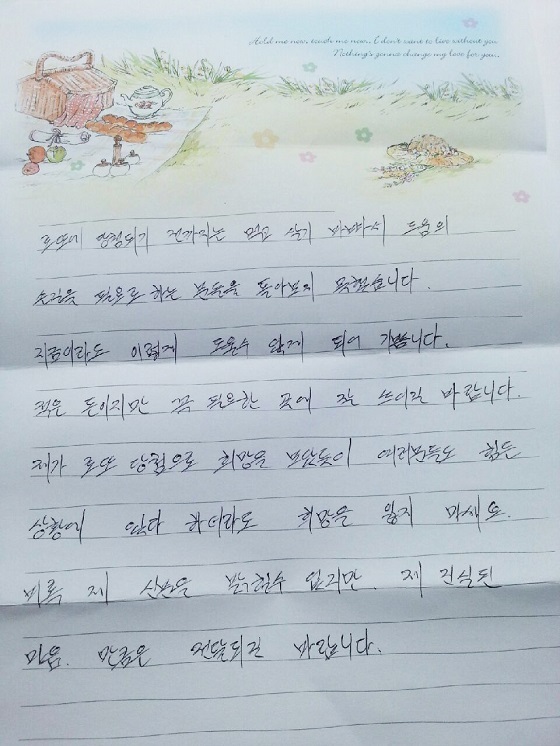 Hold me now, touch me now, I don't want to live without you
Nothing's gonna change my love for you..
로또에 당첨되기 전까지는 먹고 살기 바빠서 도움의
손길을 필요로 하는 분들을 돌아보지 못했습니다.
지금이라도 이렇게 도울수 있게 되어 기쁩니다.
적은 돈이지만 꼭 필요한 곳에 잘 쓰이길 바랍니다.
제가 로또 당첨으로 희망을 보았듯이 여러분들도 힘든
상황에 있다 하더라도 희망을 잃지 마세요.
비록 제 신분을 밝힐수 없지만, 제 진실된
마음, 만큼은 전달되길 바랍니다.